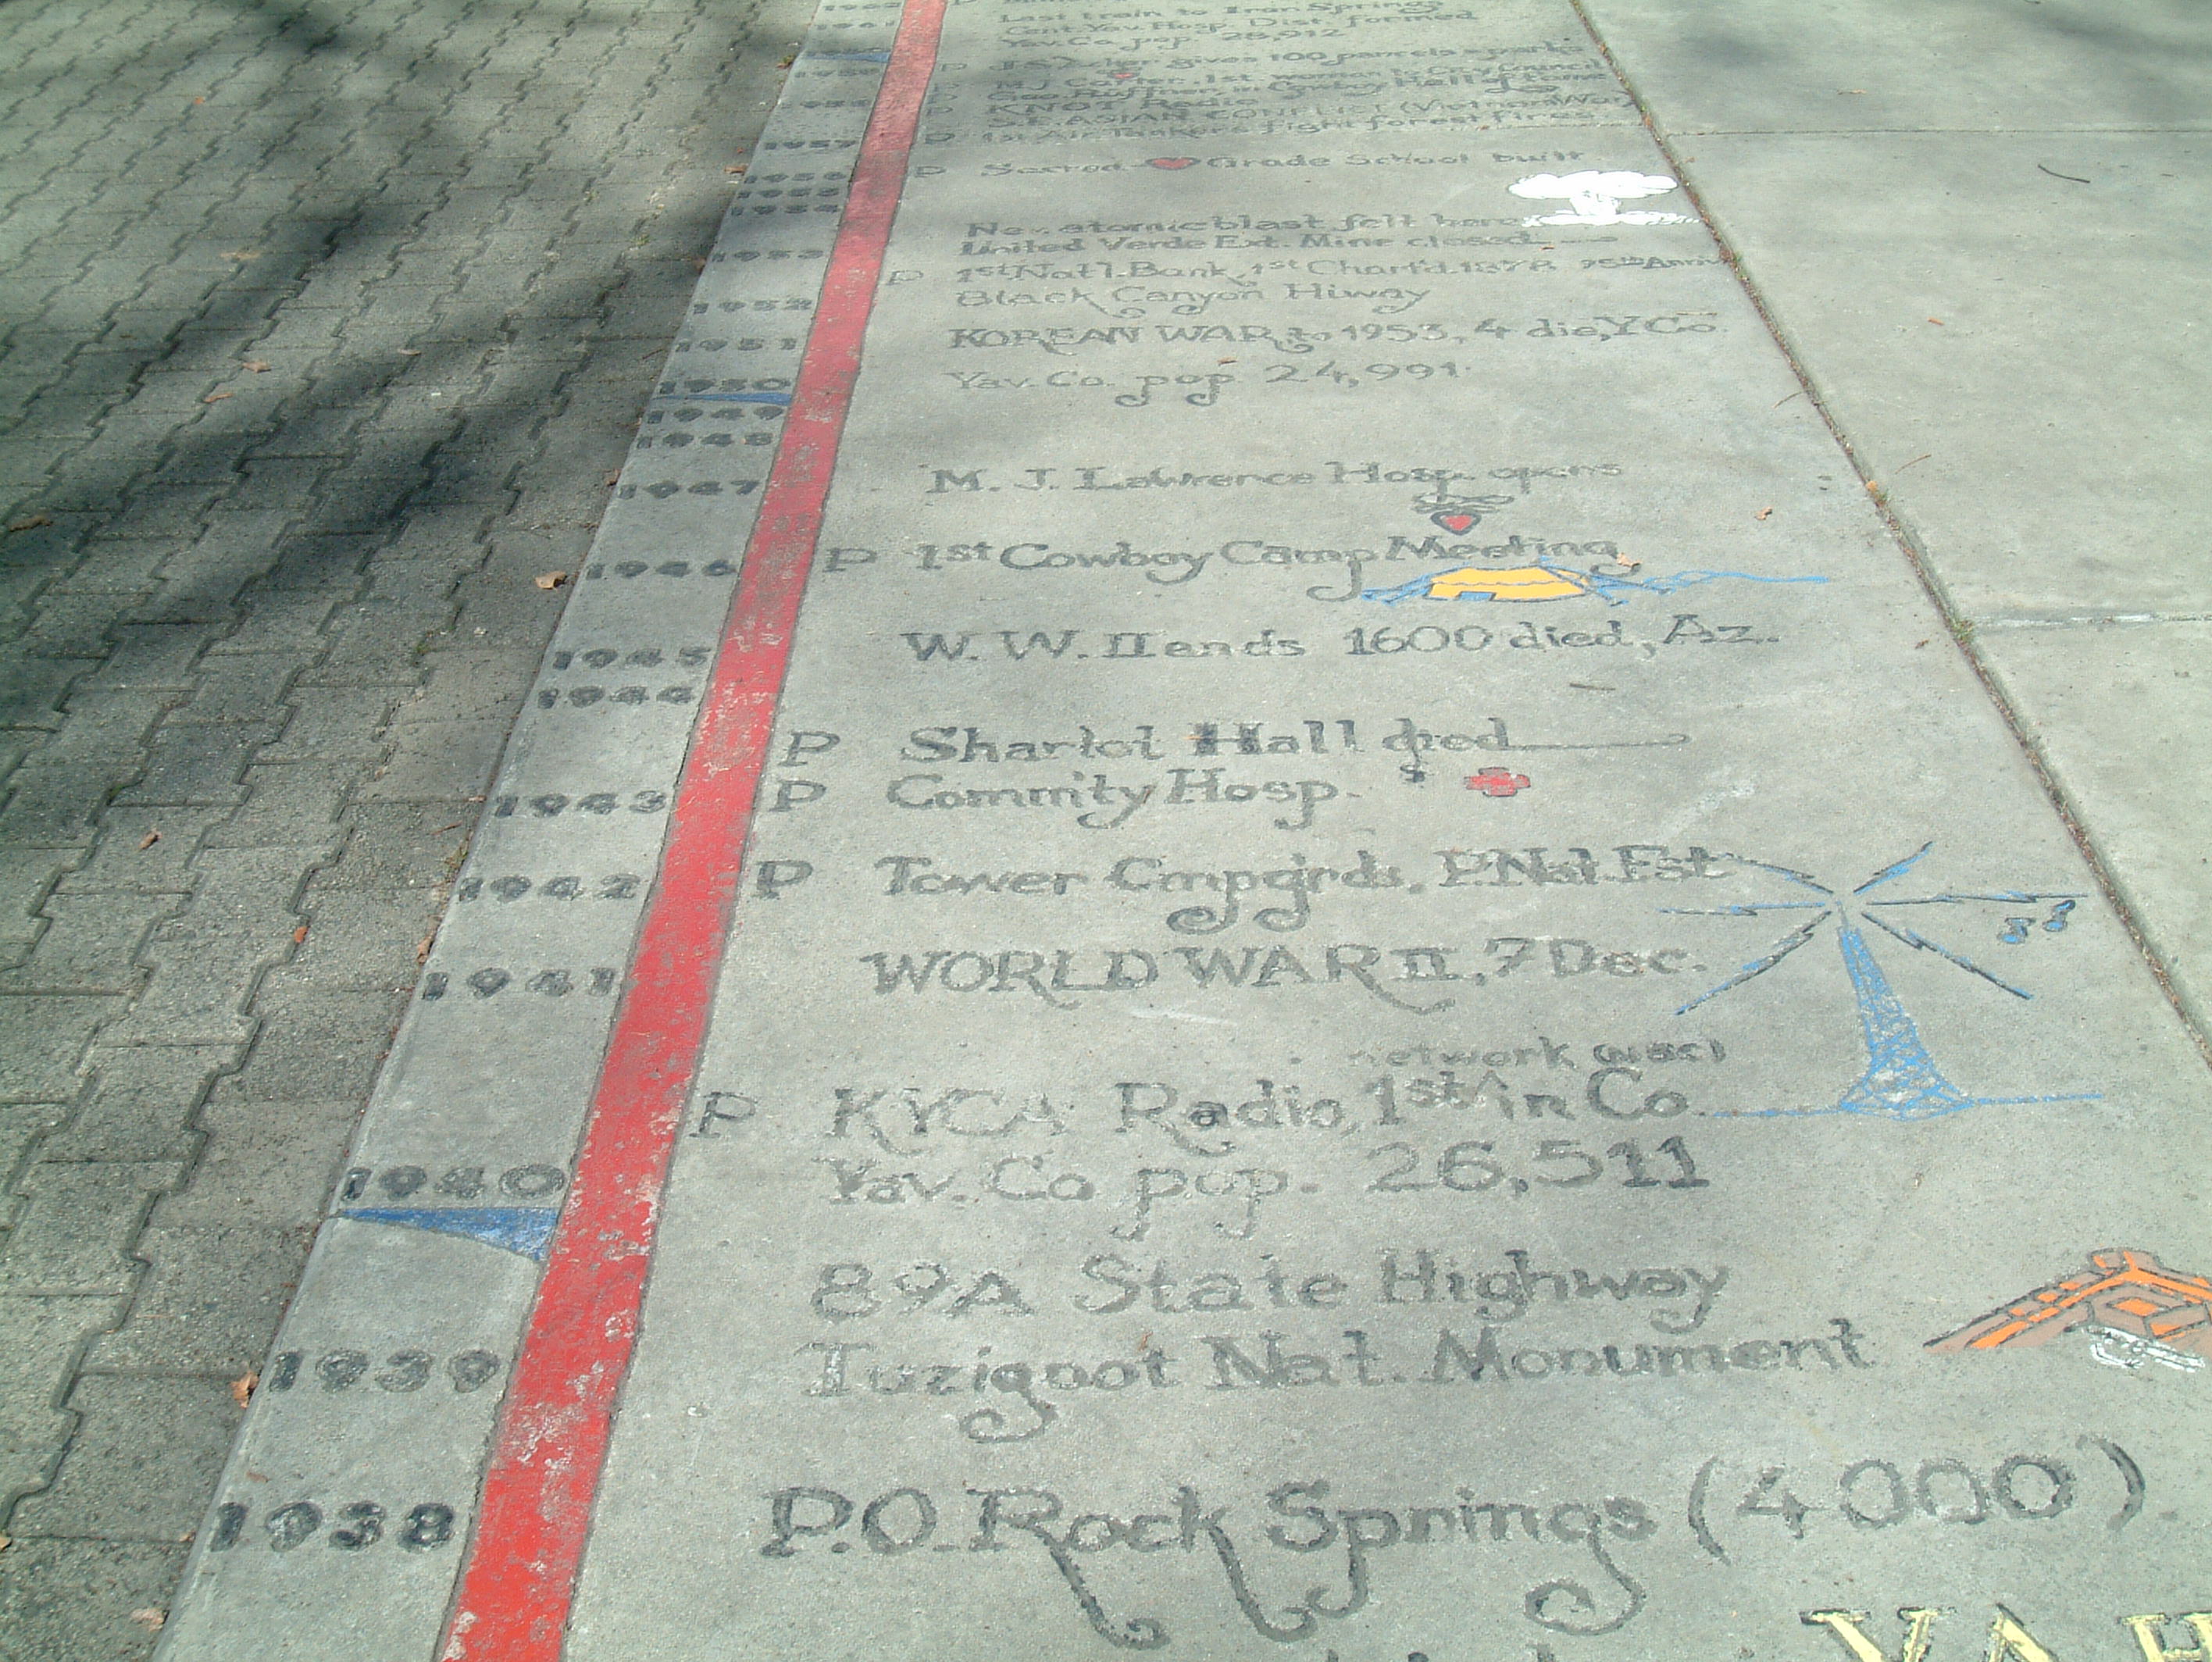 1961
Last train to Iron Springs
Cent. Yav. Hosp. Dist. formed
Yav. Co. pop. 28,912
gives 100 parcels = parks
M.J. 1st woman City Council
Geo. Ruffner in Cowboy Hall of Fame
KNOT Radio
S.E. ASIAN CONFLICT (Vietnam War)
1957 P 1st Air Tankers fight forest fires
1956 P Sacred Grade School built
1955
1954
Nev. atomic blast felt here
1953 United Verde Ext. Mine closed
P 1st Nat'l. Bank, 1st Chart'd. 1878 75th Anniv
1952 Black Canyon Hiway
1951 KOREAN WAR to 1953, 4 die, Y Co.
1950 Yav. Co. pop. 24,991
1949
1948
1947 M. J. Lawrence Hosp. opens
1946 P 1st Cowboy Camp Meeting
1945 W. W. II ends 1600 died, Az.
1944
P Sharlot Hall died
1943 P Commity Hosp.
1942 P Tower Cmpgrds. P. Nat. Fst
1941 WORLD WAR II, 7 Dec.
network (NBC)
P KYCA Radio, 1st ^ in Co.
1940 Yav. Co pop. 26,511
89A State Highway
1939 Tuzigoot Nat. Monument
1938 P.O. Rock Springs (4000)
YAH